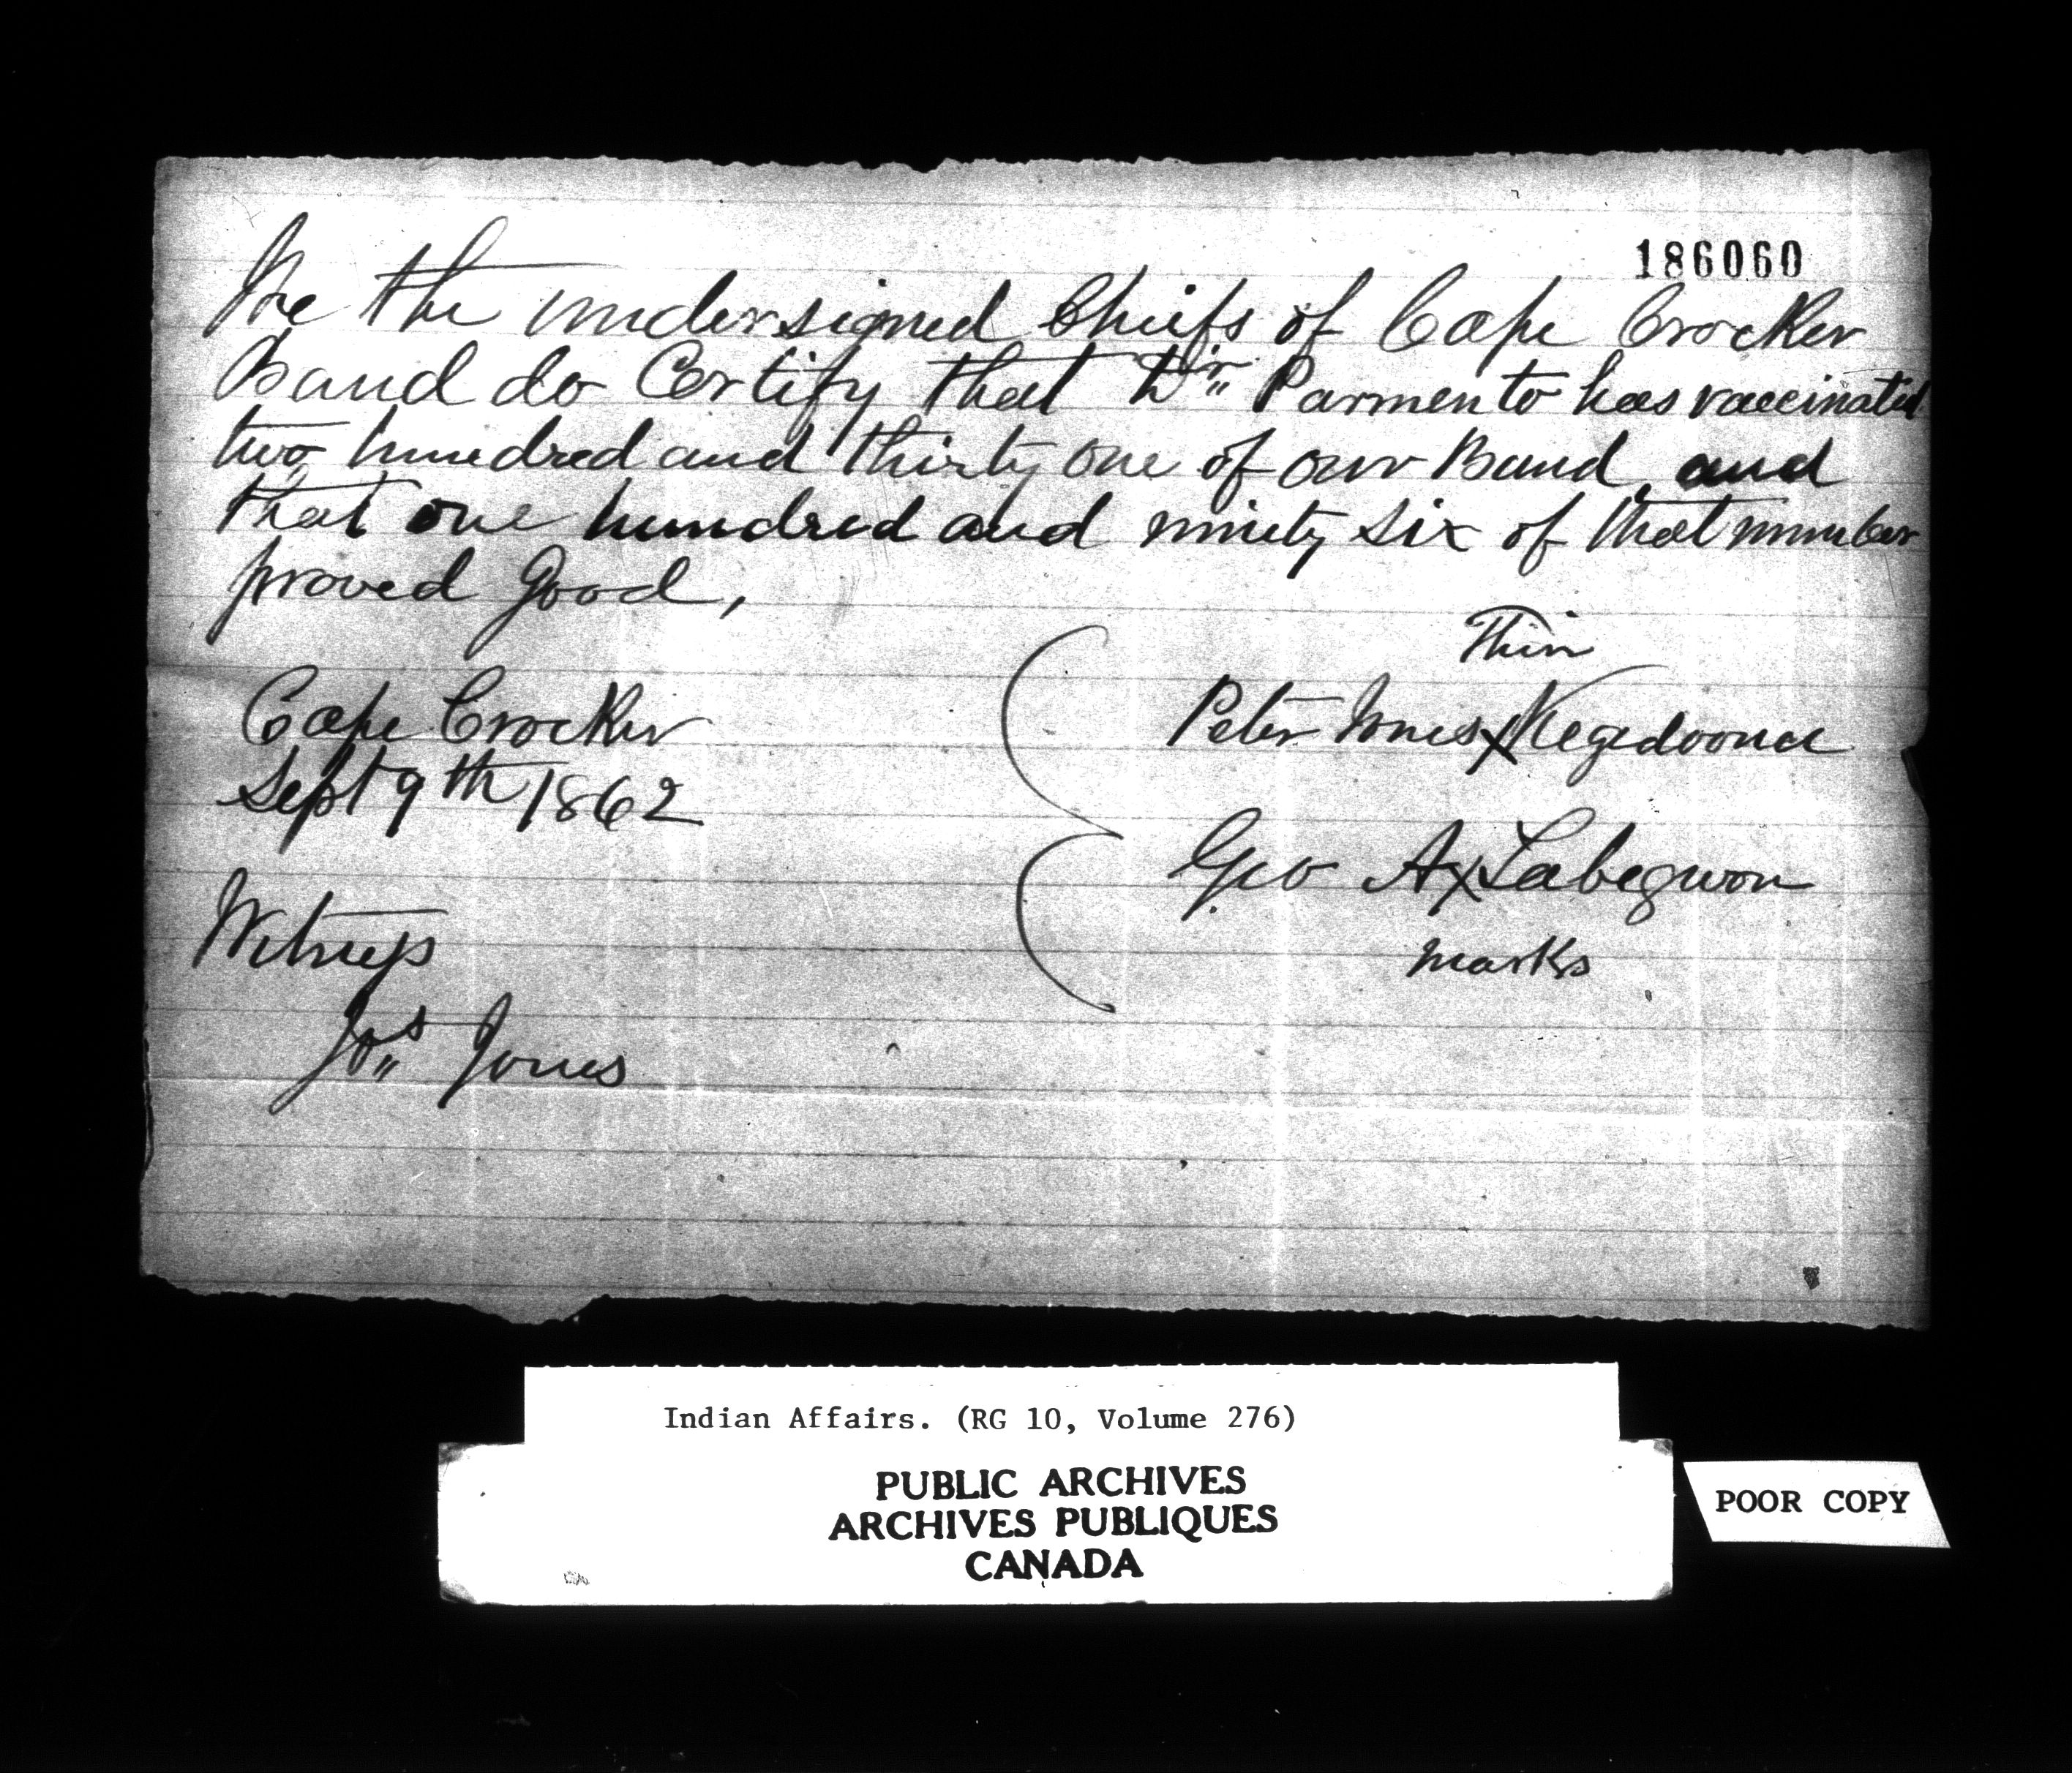 186060
We the undersigned Chiefs of Cape Crocker
Band do Certify that Dr Parmento has vaccinated
two hundred and thirty one of our Band and
that one hundred and ninety six of that number
proved Good,
Thin
Cape Crocker
Peter Jones X Kegedoonce
Sept 9th 1862
Geo A X Tabegwon
Witness
marks
Jos Jones
Indian Affairs. (RG 10, Volume 276)
PUBLIC ARCHIVES
ARCHIVES PUBLIQUES
CANADA
POOR COPY